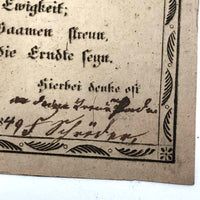 Ewigkeit;
Saamen streun,
die Erndte seyn.
Hierbei denke oft
an deine
849 Schröder